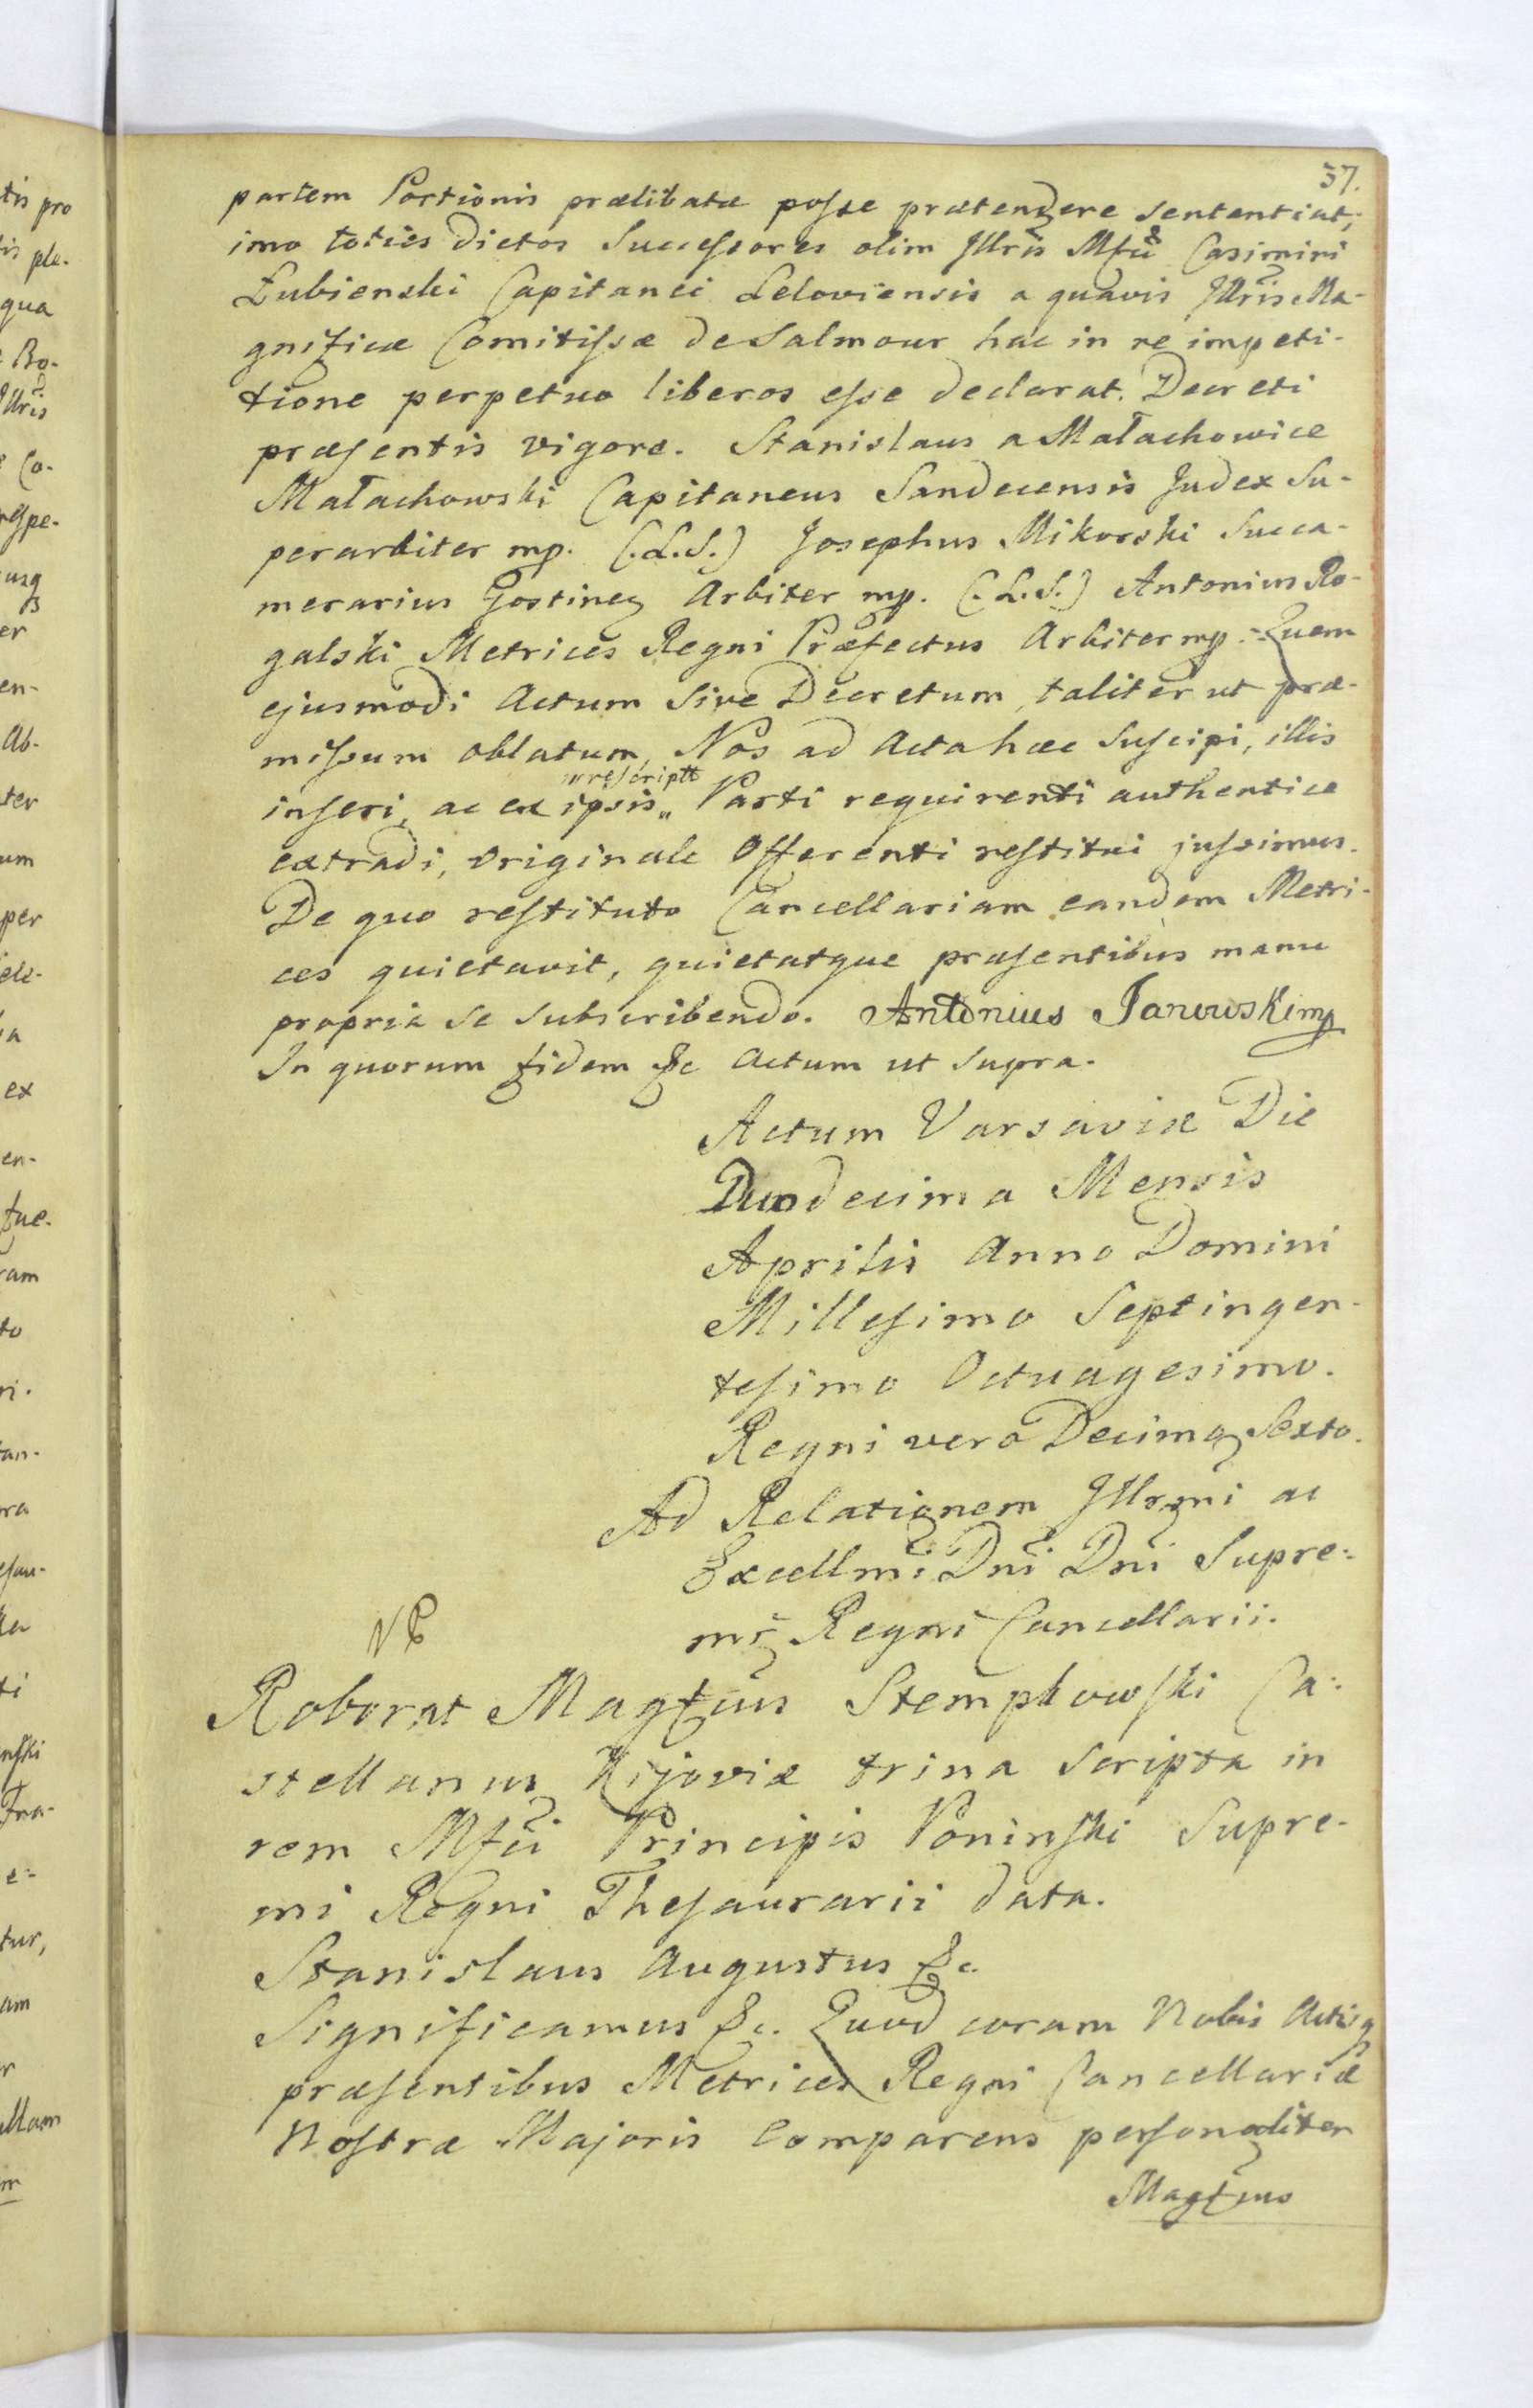 37.
partem Portionis prælibatæ posse prætendere Sententiat;
imo toties dictos Successores olim Jllris Mfci Casimiri
Łubienski Capitanei Leloviensis a quavis Jllris Ma-
gnificæ Comitissæ de Salmour hac in re impeti-
tione perpetuo liberos esse declarat. Decreti
præsentis vigore. Stanislaus a Małachowice
Małachowski Capitaneus Sandecensis Judex Su-
perarbiter mp. (.L.S.) Josephus Mikorski Succa-
merarius Gostinen Arbiter mp. (.L.S.) Antonius Ro-
galski Metrices Regni Præfectus Arbiter mp.:- Quem
ejusmodi Actum Sive Decretum, taliter ut præ-
missum oblatum, Nos ad Acta hæc Suscipi, illis
inseri, ac ex ipsis „rescriptt Parti requirenti authentice
extradi, Originale Offerenti restitui jussimus.
De quo restituto Cancellariam eandem Metri-
ces quietavit, quietatque præsentibus manu
propria se Subscribendo. Antonius Janowski mp
In quorum fidem &c Actum ut Supra.
Actum Varsaviæ Die
Duodecima Mensis
Aprilis Anno Domini
Millesimo Septingen-
tesimo Octuagesimo.
Regni vero Decimo Sexto.
Ad Relationem Jllrmi ac
Excellmi Dni Dni Supre-
mi Regni Cancellarii.
NB
Roborat Magfcus Stempkowski Ca-
stellanus Kijoviæ trina Scripta in
rem Mfci Principis Poninski Supre-
mi Regni Thesaurarii data.
Stanislaus Augustus &c.
Significamus &c. Quod coram Nobis Actisq
præsentibus Metrices Regni Cancellariæ
Nostræ Majoris Comparens personaliter
Magfcus
tis pro
is ple-
qua
Bo-
Jllris
Co-
respe-
usq
er
en-
Ab-
ter
um
per
ele-
a
ex
en-
fue-
ram
to
ri.
tan-
ra
ti
nski
Fra-
e-
tur,
am
r
llam
m